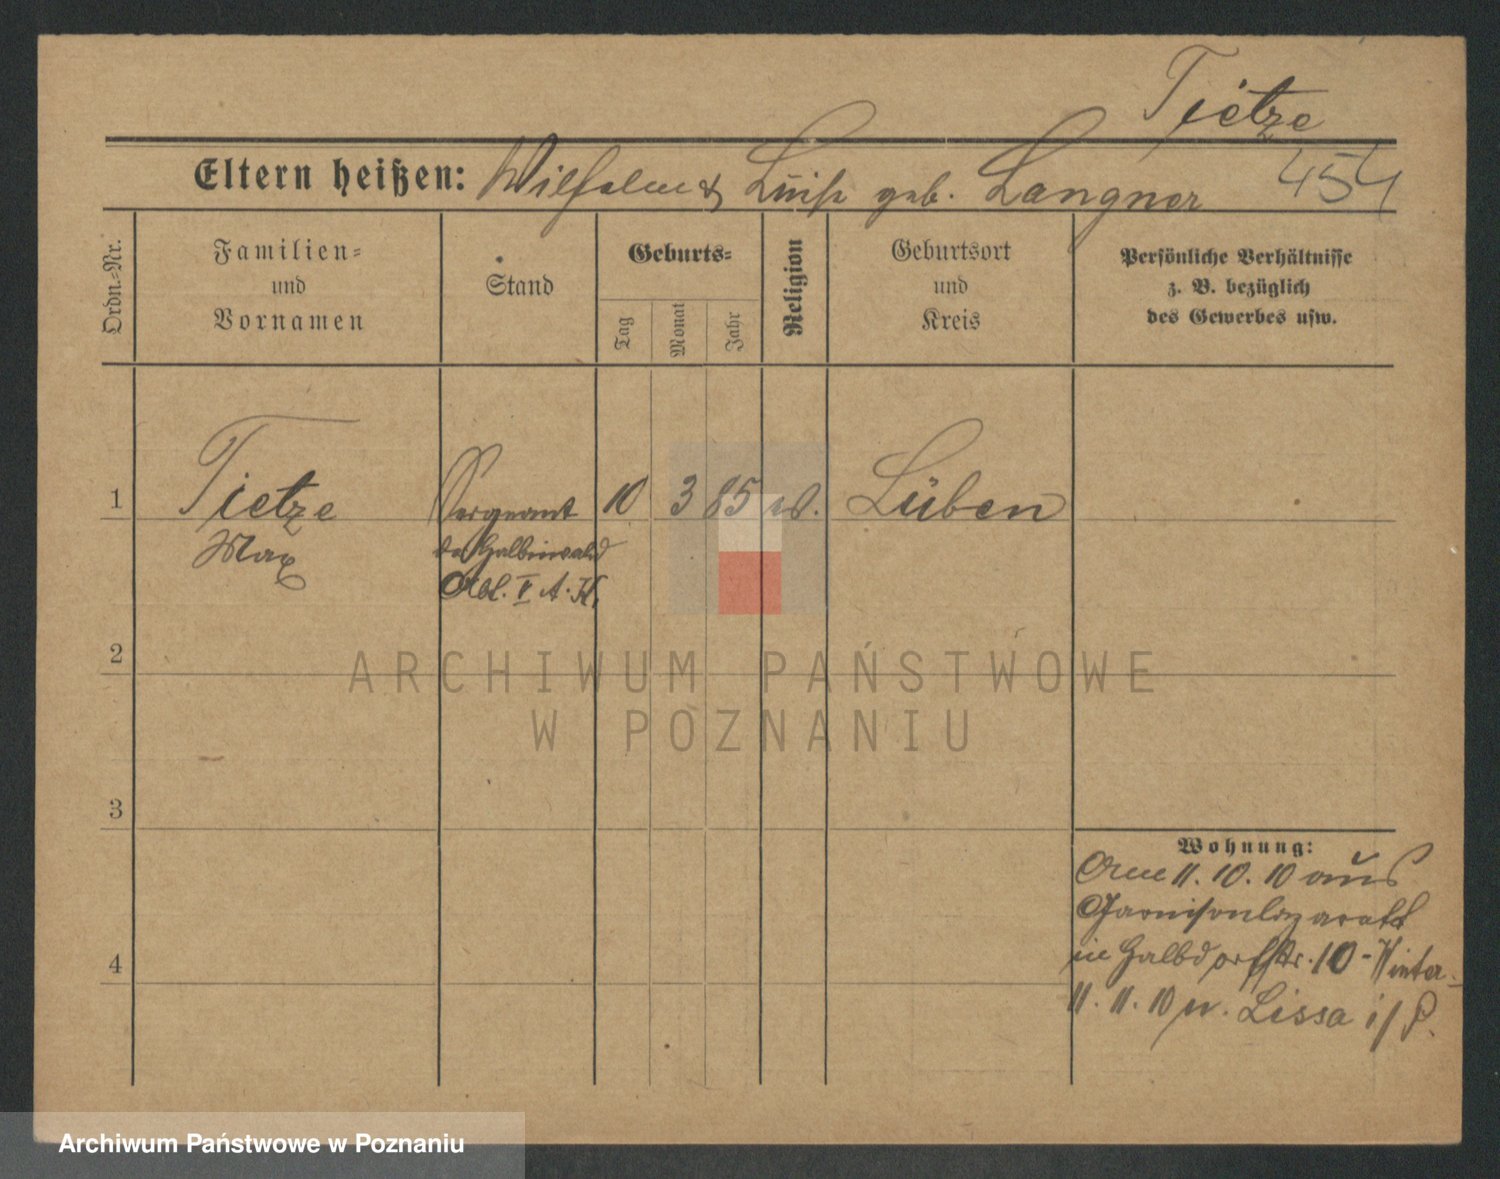 Tietze
Eltern heißen: Wilhelm & Luise geb. Langner 454
Ordn.-Nr.
Familien-
und
Vornamen
Stand
Geburts-
Tag
Monat
Jahr
Religion
Geburtsort
und
Kreis
Persönliche Verhältnisse
z. B. bezüglich
des Gewerbes usw.
1 Tietze Sergeant 10 3 85 Lüben
Max der Halbinvalid
Abt. V A. K.
2
ARCHIWUM PAŃSTWOWE
W POZNANIU
3
Wohnung:
11. 10. 10 aus
Garnisonlazarett
in Halbdorfstr. 10 -
4
11. 11. 10 n. Lissa i/P.
Archiwum Państwowe w Poznaniu